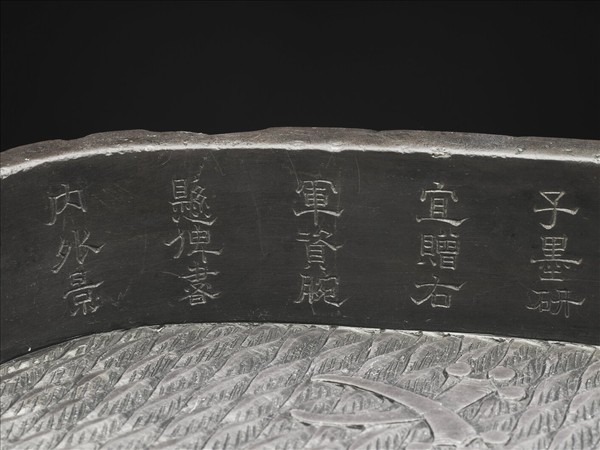 子墨研
宜贈右
軍資腕
懸俾書
內外景